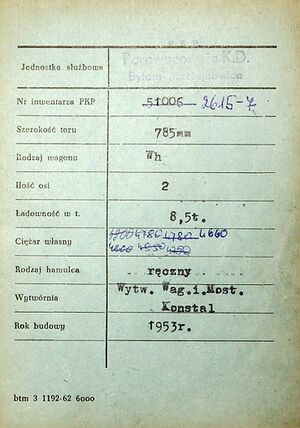 P.K.P.
Parowozownia K.D.
Bytom Karb
Jednostka służbowa
Nr inwentarza PKP 51006 2615-7
Szerokość toru 785mm
Rodzaj wagonu Wh
Ilość osi 2
Ładowność w t. 8,5t.
Ciężar własny 4780 4780 4660
4660 4550
Rodzaj hamulca ręczny
Wytwórnia Wytw. Wag.i.Most.
Konstal
Rok budowy 1953r.
btm 3 1192-62 6000